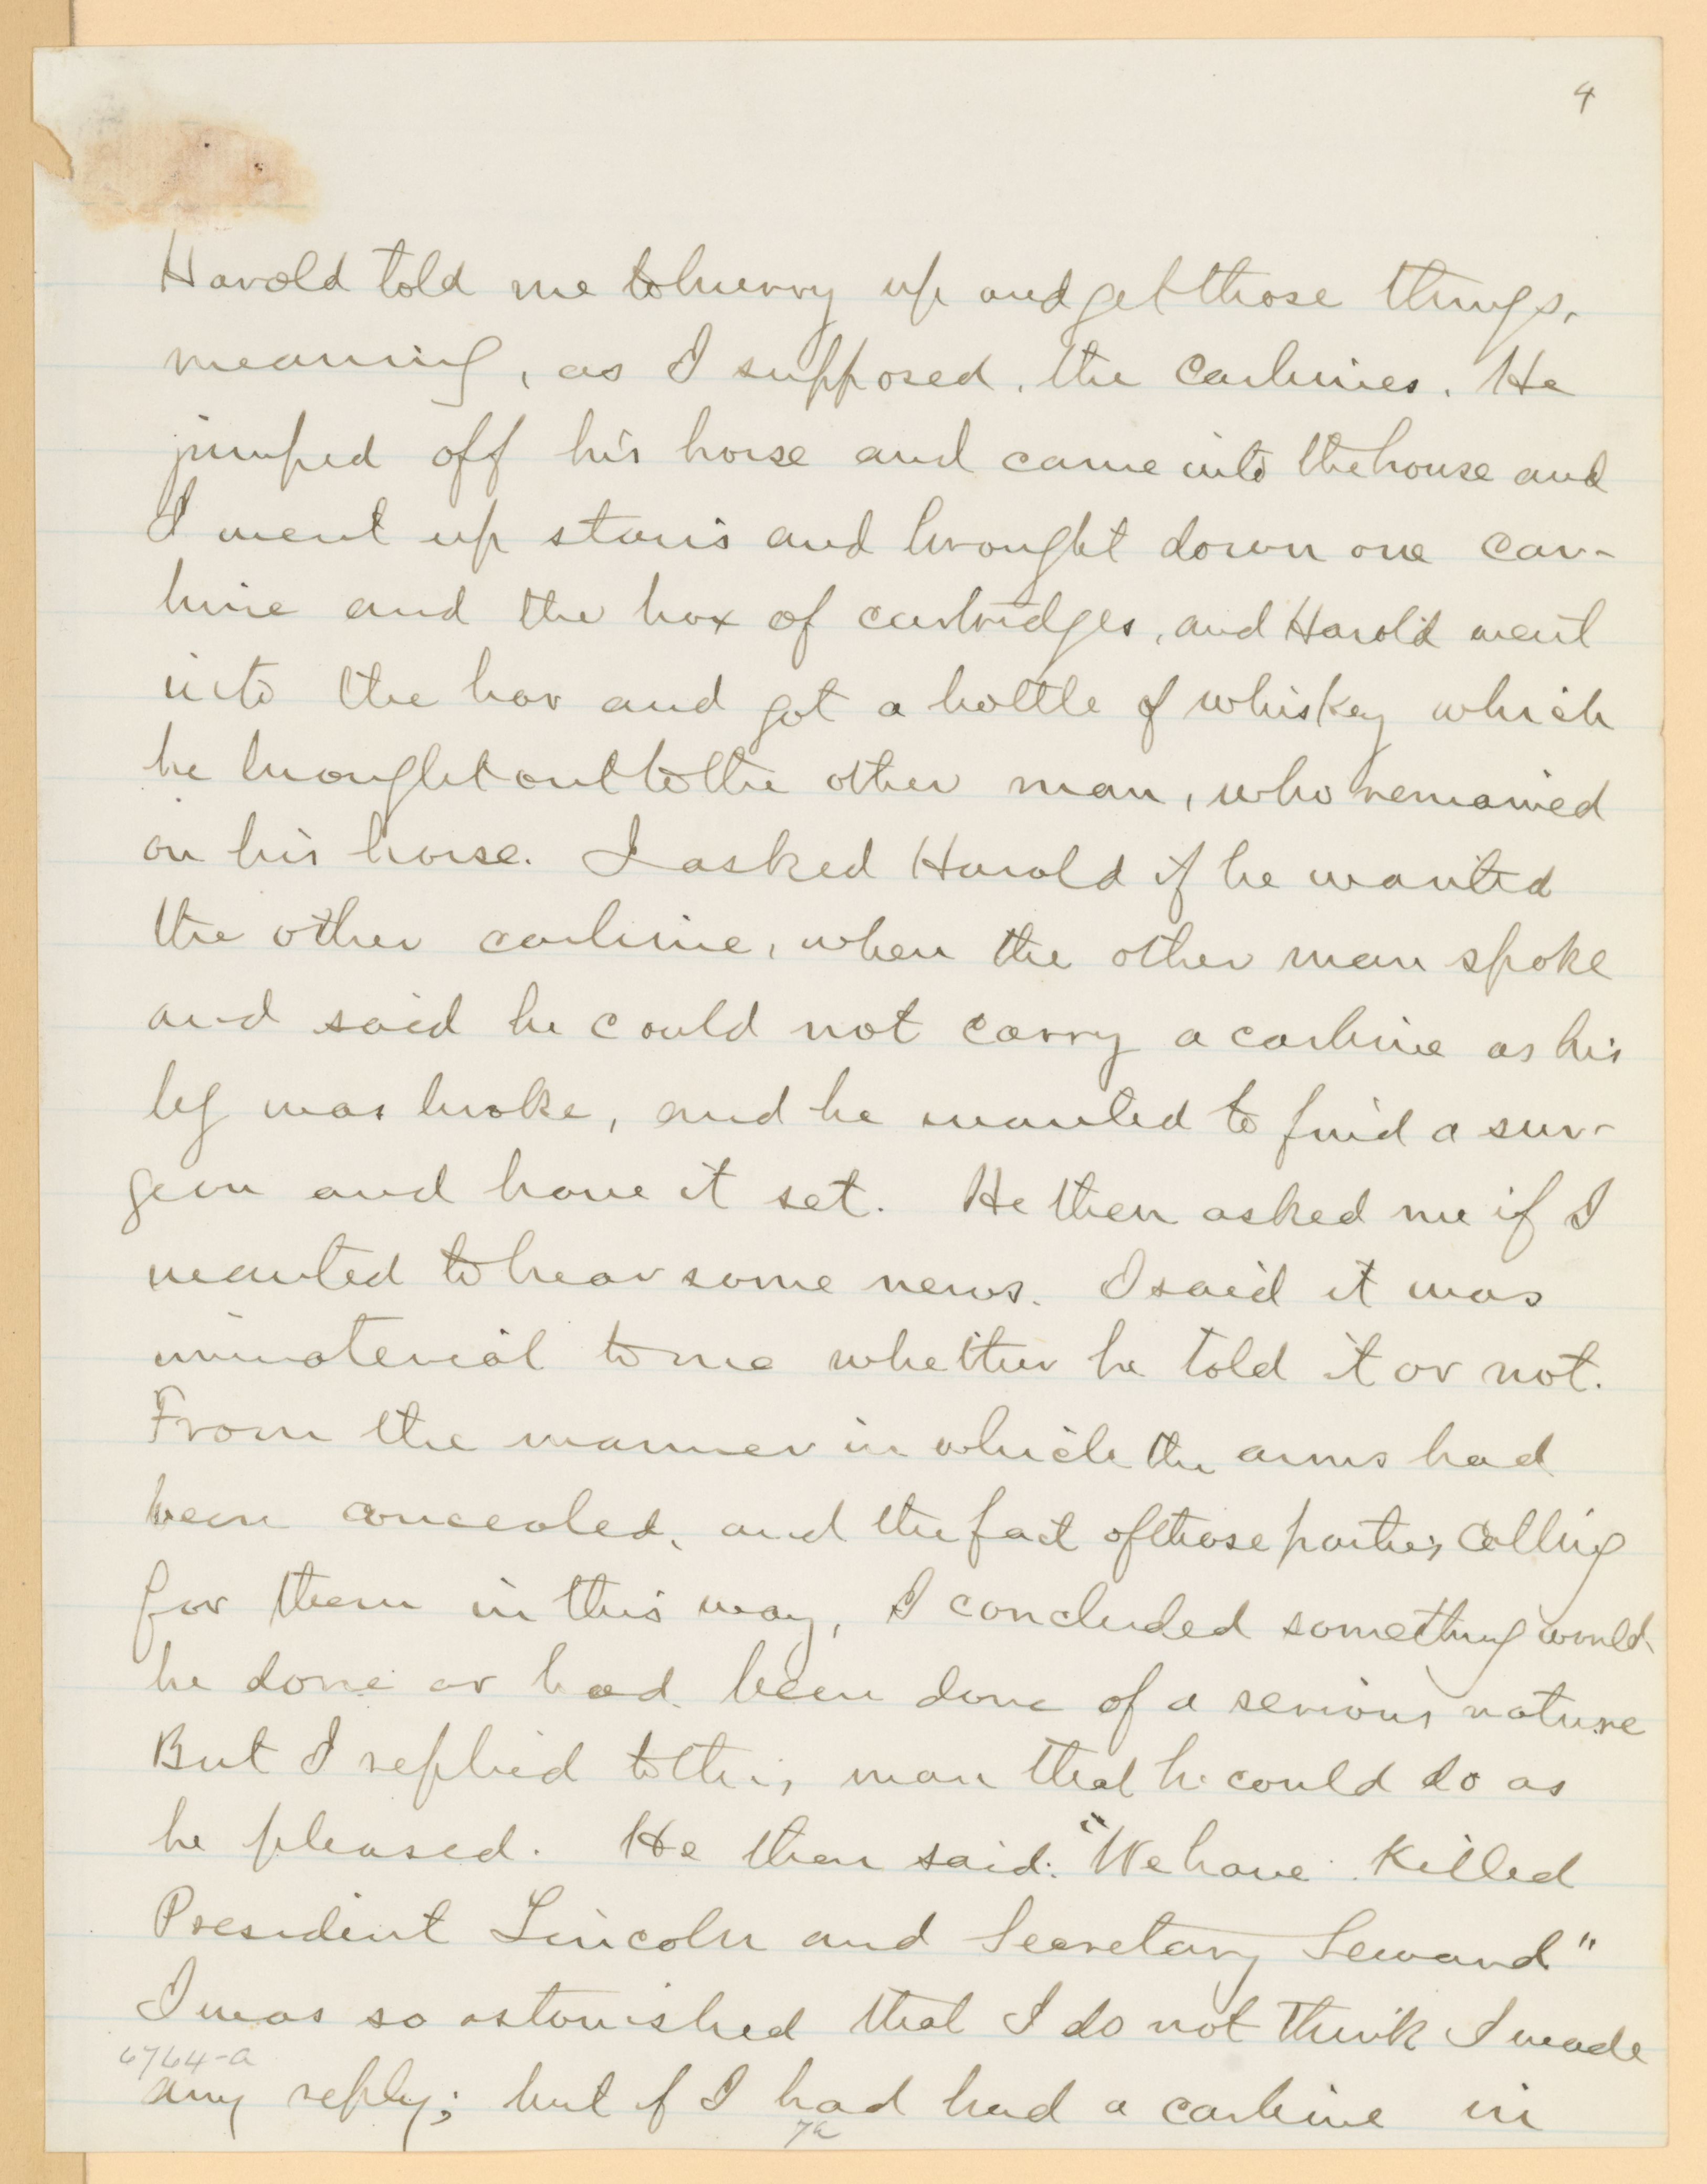 4
Harold told me to hurry up and get those things,
meaning, as I supposed, the carbines. He
jumped off his horse and came into the house and
I went up stairs and brought down one car-
bine and the box of cartridges, and Harold went
into the bar and got a bottle of whiskey which
he brought out to the other man, who remained
on his horse. I asked Harold if he wanted
the other carbine, when the other man spoke
and said he could not carry a carbine as his
leg was broke, and he wanted to find a sur-
geon and have it set. He then asked me if I
wanted to hear some news. I said it was
immaterial to me whether he told it or not.
From the manner in which the arms had
been concealed, and the fact of those parties calling
for them in this way, I concluded something would
be done or had been done of a serious nature
But I replied to this man that he could do as
he pleased. He then said: "We have killed
President Lincoln and Secretary Seward"
I was so astonished that I do not think I made
6764-a
any reply; but if I had had a carbine in
7a